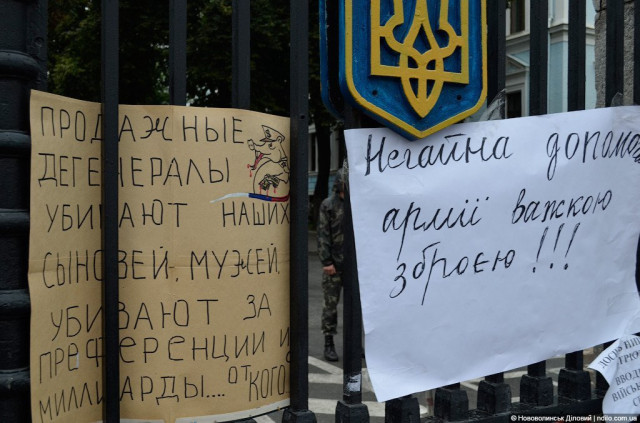 ПРОДАЖНЫЕ
ДЕГЕНЕРАЛЫ
УБИВАЮТ НАШИХ
СЫНОВЕЙ, МУЖЕЙ,
УБИВАЮТ ЗА
ПРЕФЕРЕНЦИИ И
МИЛЛИАРДЫ.... ОТ КОГО
Негайна допомо
армії важкою
зброєю!!!
© Нововолинськ Діловий | ndilo.com.ua